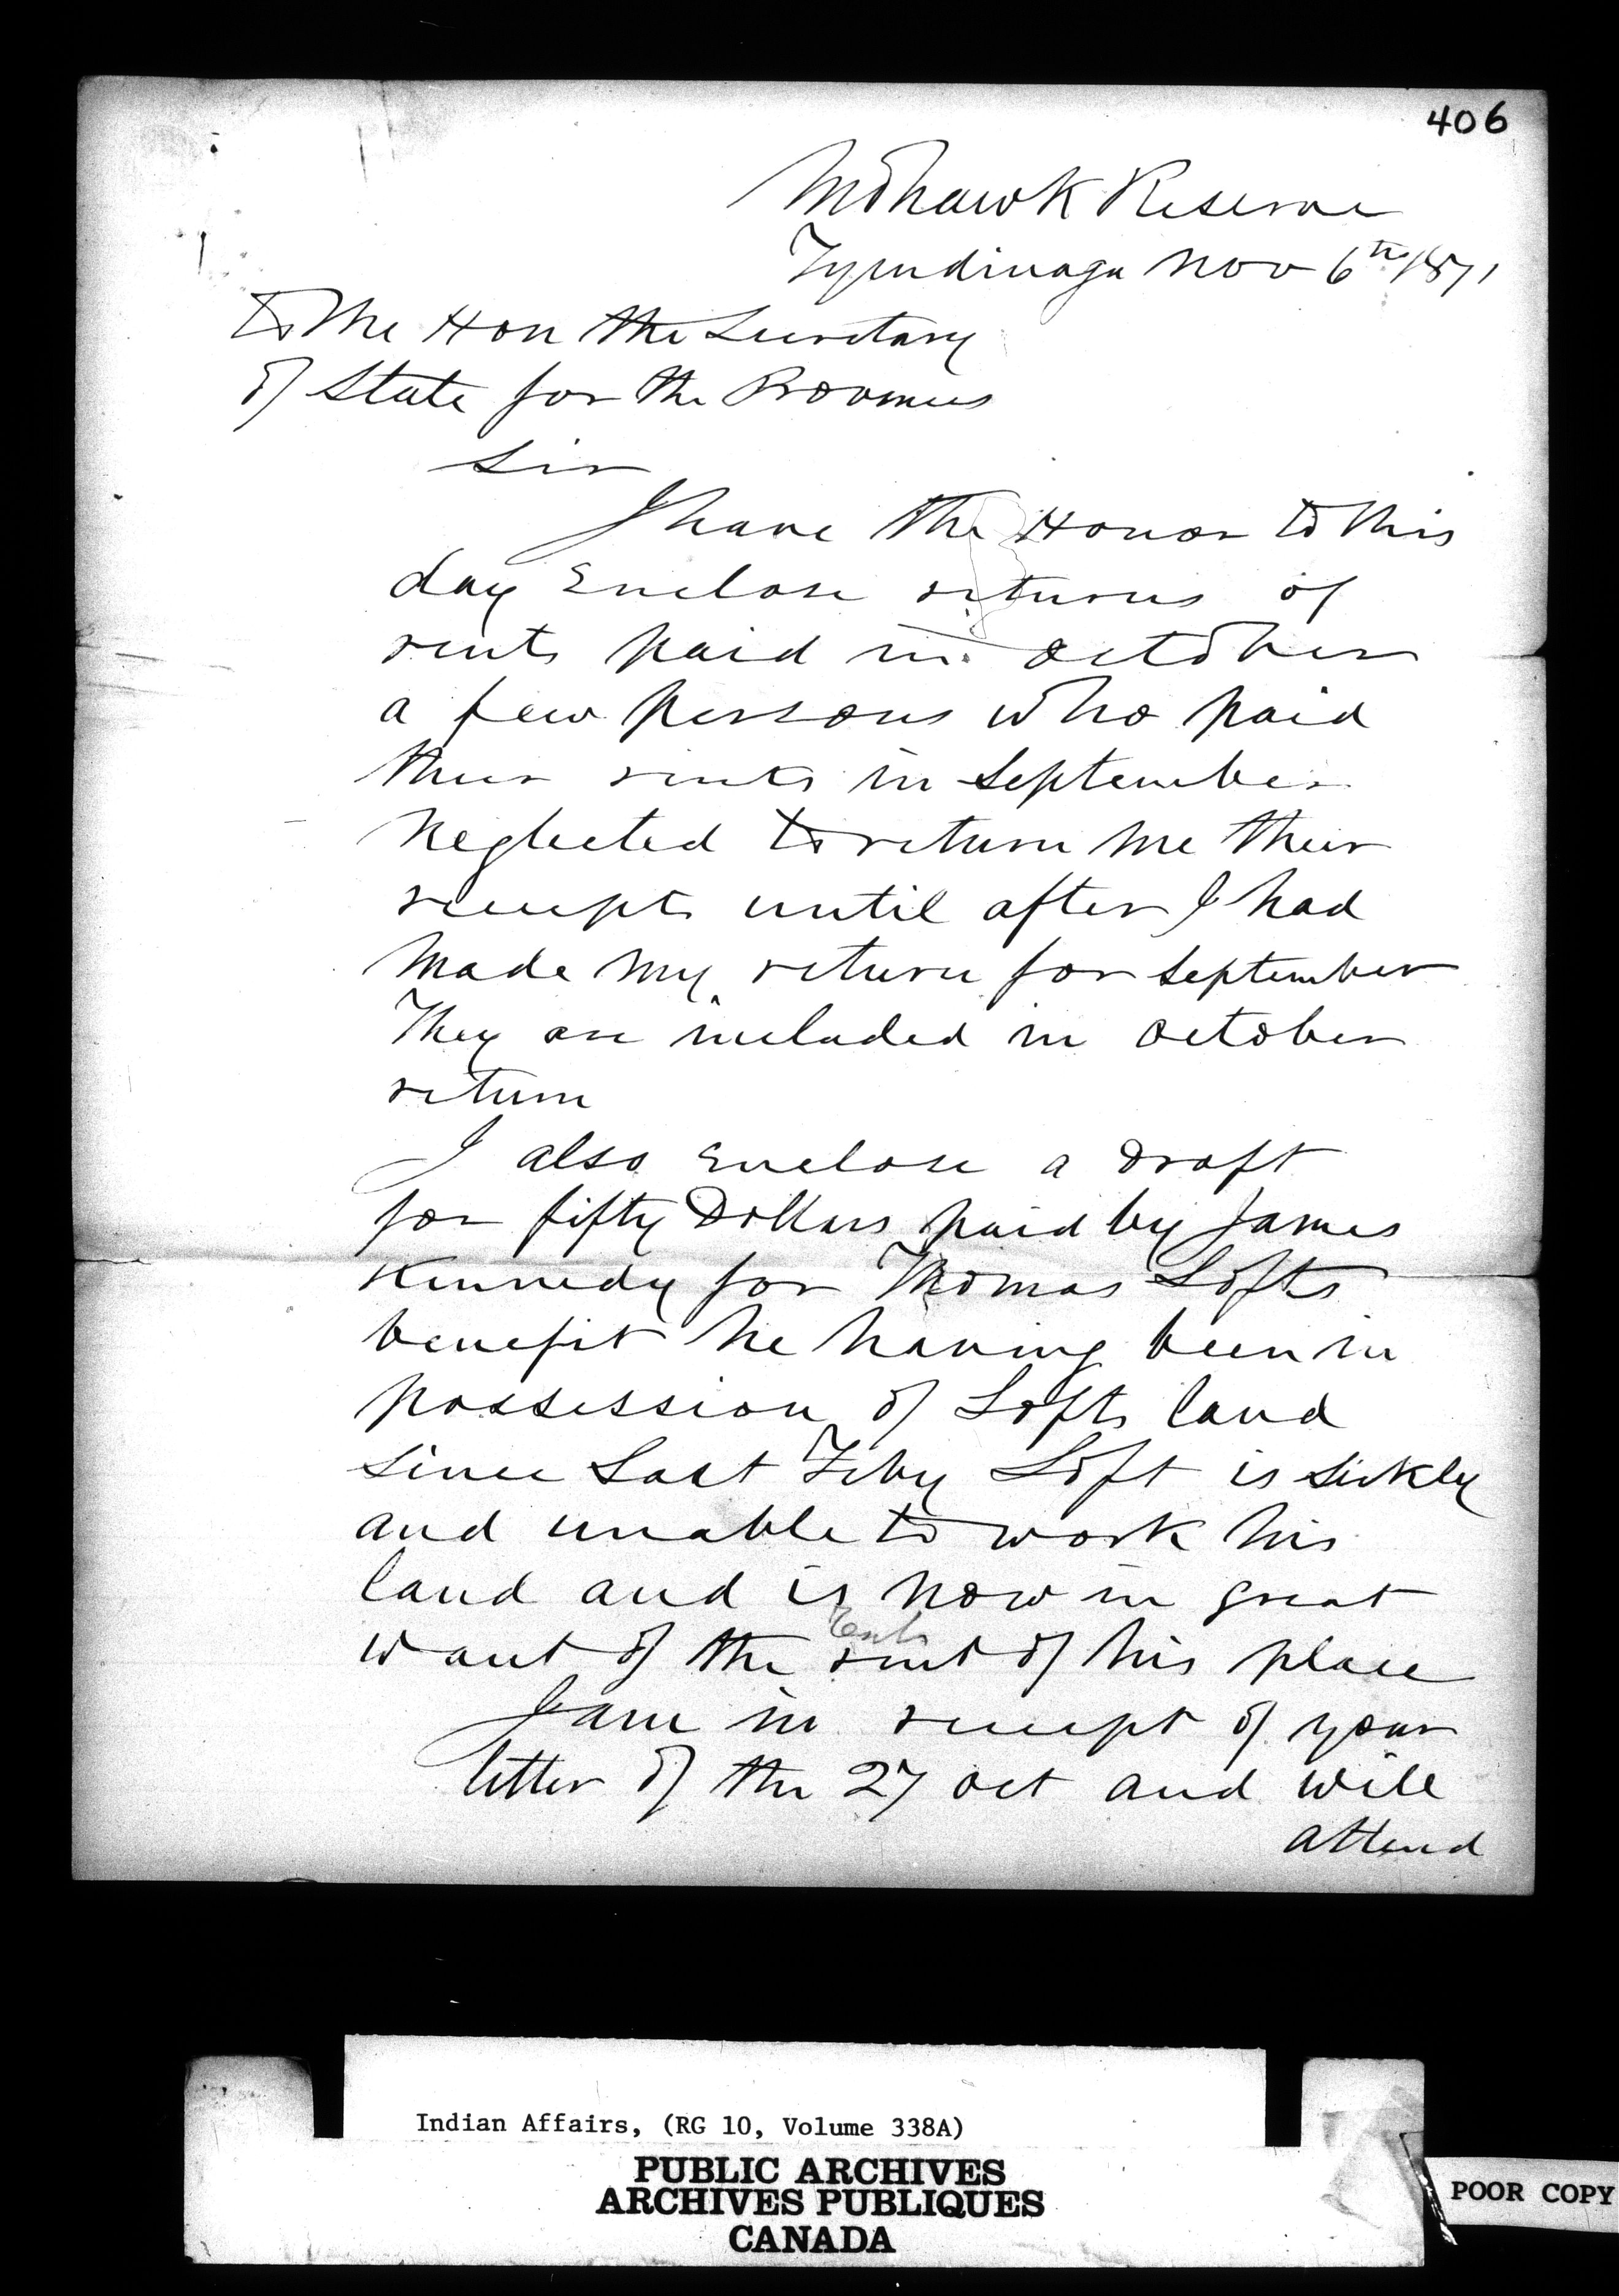 406
Mohawk Reserve
Tyendinaga Nov 6th 1871
to The Hon the Secretary
of State for the Provinces
Sir
I have the Honor to this
day Enclose returns of
rents paid in October
a few persons who paid
their rents in September
Neglected to return me their
receipts until after I had
Made My return for September
They are included in October
return
I also Enclose a Draft
for fifty Dollars paid by James
Kennedy for Thomas Lofts
benefit he having been in
possession of Lofts land
Since Last Feby Loft is Sickly
and unable to work his
land and is now in great
want of the rent of his place
I am in receipt of your
letter of the 27 Oct and will
attend
Indian Affairs, (RG 10, Volume 338A)
PUBLIC ARCHIVES
ARCHIVES PUBLIQUES
CANADA
POOR COPY